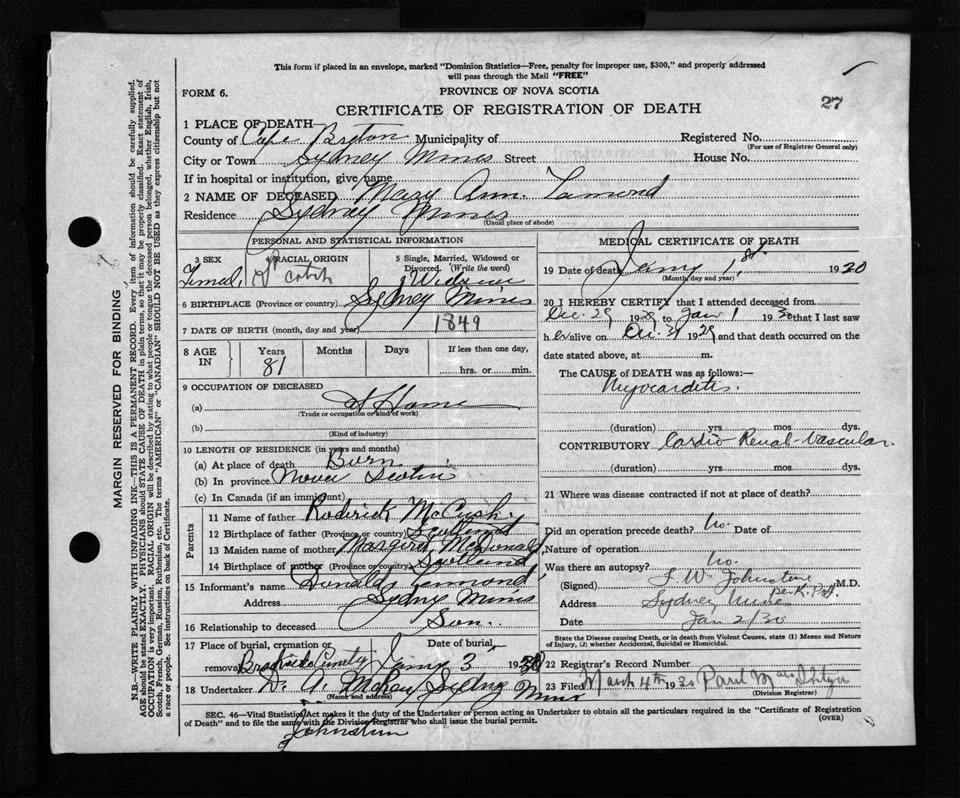 This form if placed in an envelope, marked "Dominion Statistics—Free, penalty for improper use, $300," and properly addressed
will pass through the Mail "FREE"
FORM 6.
PROVINCE OF NOVA SCOTIA
27
CERTIFICATE OF REGISTRATION OF DEATH
1 PLACE OF DEATH—
County of Cape Breton Municipality of Registered No.
(For use of Registrar General only)
City or Town Sydney Mines Street House No.
If in hospital or institution, give name
2 NAME OF DECEASED Mary Ann. Lamond
Residence Sydney Mines
(Usual place of abode)
PERSONAL AND STATISTICAL INFORMATION
3 SEX 4 RACIAL ORIGIN 5 Single, Married, Widowed or Divorced. (Write the word)
Femal Scotch Widow
6 BIRTHPLACE (Province or country) Sydney Mines
7 DATE OF BIRTH (month, day and year) 1849
8 AGE IN Years Months Days If less than one day,
81 hrs. or min.
9 OCCUPATION OF DECEASED
(a) at Home
(Trade or occupation or kind of work)
(b)
(Kind of industry)
10 LENGTH OF RESIDENCE (in years and months)
(a) At place of death Born
(b) In province Nova Scotia
(c) In Canada (if an immigrant)
Parents
11 Name of father Roderick McCush
12 Birthplace of father (Province or country) Scotland
13 Maiden name of mother Margaret McDonald
14 Birthplace of mother (Province or country) Scotland
15 Informant's name Donald Lamond
Address Sydney Mines
16 Relationship to deceased Son.
17 Place of burial, cremation or removal Date of burial,
Jany 3 1930
18 Undertaker D. A. McKay Sydney Mines
(Name and address)
MEDICAL CERTIFICATE OF DEATH
19 Date of death Jany 1st 1930
(Month, day and year)
20 I HEREBY CERTIFY that I attended deceased from
Dec. 29 1929 to Jan 1 1930 that I last saw
h er alive on Dec. 31 1929 and that death occurred on the
date stated above, at m.
The CAUSE of DEATH was as follows:—
Myocarditis.
(duration) yrs. mos. dys.
CONTRIBUTORY Cardio Renal-Vascular.
(duration) yrs. mos. dys.
21 Where was disease contracted if not at place of death?
Did an operation precede death? No. Date of
Nature of operation
Was there an autopsy? No.
(Signed) L. W. Johnstone M.D.
Address Sydney Mines
Date Jan 2/30
State the Disease causing Death, or in death from Violent Causes, state (1) Means and Nature of Injury, (2) whether Accidental, Suicidal or Homicidal.
22 Registrar's Record Number
23 Filed March 4th 1930
(Division Registrar)
SEC. 46—Vital Statistics Act makes it the duty of the Undertaker or person acting as Undertaker to obtain all the particulars required in the "Certificate of Registration
of Death" and to file the same with the Division Registrar who shall issue the burial permit.
(OVER)
Johnston
MARGIN RESERVED FOR BINDING
N.B.—WRITE PLAINLY WITH UNFADING INK—THIS IS A PERMANENT RECORD. Every item of information should be carefully supplied.
AGE should be stated EXACTLY. PHYSICIANS should STATE CAUSE OF DEATH in plain terms, so that it may be properly classified. Exact statement of
OCCUPATION is very important. RACIAL ORIGIN will be described by stating to what people or tongue the deceased person belonged, whether English, Irish,
Scotch, French, German, Russian, Ruthenian, etc. The terms "AMERICAN" or "CANADIAN" SHOULD NOT BE USED as they express citizenship but not
a race or people. See instructions on back of Certificate.